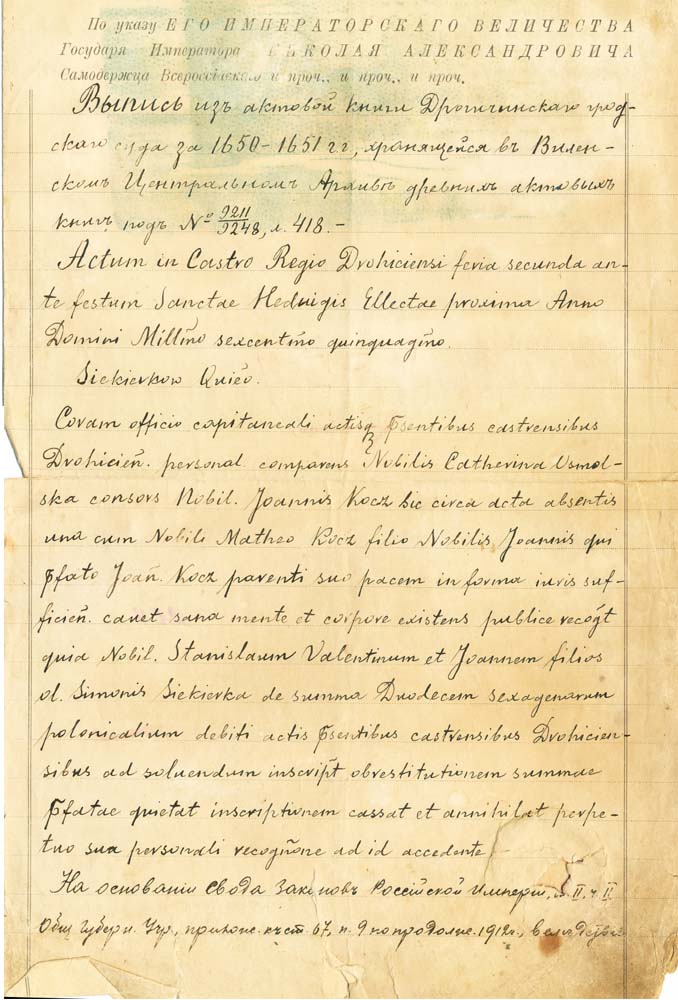 По указу ЕГО ИМПЕРАТОРСКАГО ВЕЛИЧЕСТВА
Государя Императора НИКОЛАЯ АЛЕКСАНДРОВИЧА
Самодержца Всероссійскаго и проч., и проч., и проч.
Выпись изъ актовой книги Дрогичинскаго грод-
скаго суда за 1650-1651 г.г., хранящейся въ Вилен-
скомъ Центральномъ Архивѣ древнихъ актовыхъ
книгъ подъ № 9211/9248, л. 418.-
Actum in Castro Regio Drohiciensi feria secunda an-
te festum Sanctae Hedvigis Ellectae proxima Anno
Domini Millino sexcentino quinquagino.
Siekierkow Quieo.
Coram officio capitaneali actisq psentibus castrensibus
Drohicień. personal. comparens Nobilis Catherina Usmol-
ska consors Nobil. Joannis Kocz hic circa acta absentis
una cum Nobile Matheo Kocz filio Nobilis Joannis qui
pfato Joań. Kocz parenti suo pacem in forma iuris suf-
ficień. cavet sana mente et corpore existens publice recogt
quia Nobil. Stanislaum Valentinum et Joannem filios
ol. Simonis Siekierka de summa Duodecem sexagenarum
polonicalium debiti actis psentibus castrensibus Drohicien-
sibus ad soluendum inscript obrestitutionem summae
pfatae quietat inscriptionem cassat et annihilat perpe-
tuo sua personali recognone ad id accedente.
На основаніи Свода Законовъ Россійской Имперіи, т. II, ч. II
Общ. Губерн. Учр., прилож. къ ст. 67, п. 9 по продолж. 1912 г.,